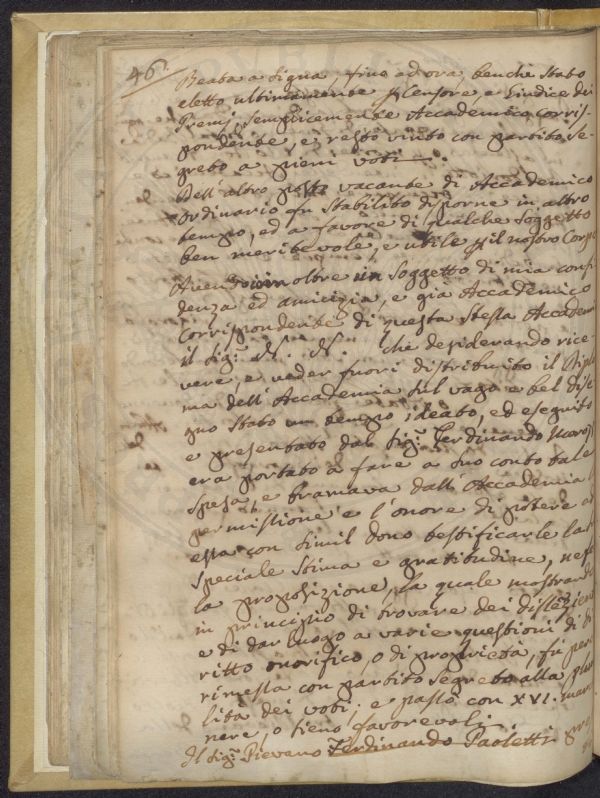 46.
Beata a Signa, fino ad ora, benche stato
eletto ultimamente p Censore e Giudice dei
Premj, semplicemente Accademico Corris-
pondente, e restò vinto con partito se-
greto a pieni voti.
Dell'altro posto vacante di Accademico
Ordinario fu stabilito disporne in altro
tempo, ed a favore di qualche soggetto
ben meritevole, e utile p il nostro Corpo
Avendo inoltre un Soggetto di mia confi
denza ed amicizia, e già Accademico
Corrispondente di questa stessa Accadem
il Sig.r N. N. che desiderando rice-
vere, e veder fuori distribuito il Diplo
ma dell'Accademia sul vago e bel dise
gno stato un tempo ideato, ed eseguito
e presentato dal Sig.r Ferdinando
era portato a fare a suo conto tale
spesa, e bramava dall'Accademia
permissione e l'onore di potere ad
essa con simil dono testificarle la
speciale stima e gratitudine, ne
la proposizione, la quale mostrando
in principio di trovare dei
e di dar luogo a varie questioni di di
ritto onorifico, o di proprietà, fù
rimessa con partito segreto alla plura
lità dei voti; e passò con XVI.
nere, o sieno favorevoli.
Il Sig.r Pievano Ferdinando Paoletti